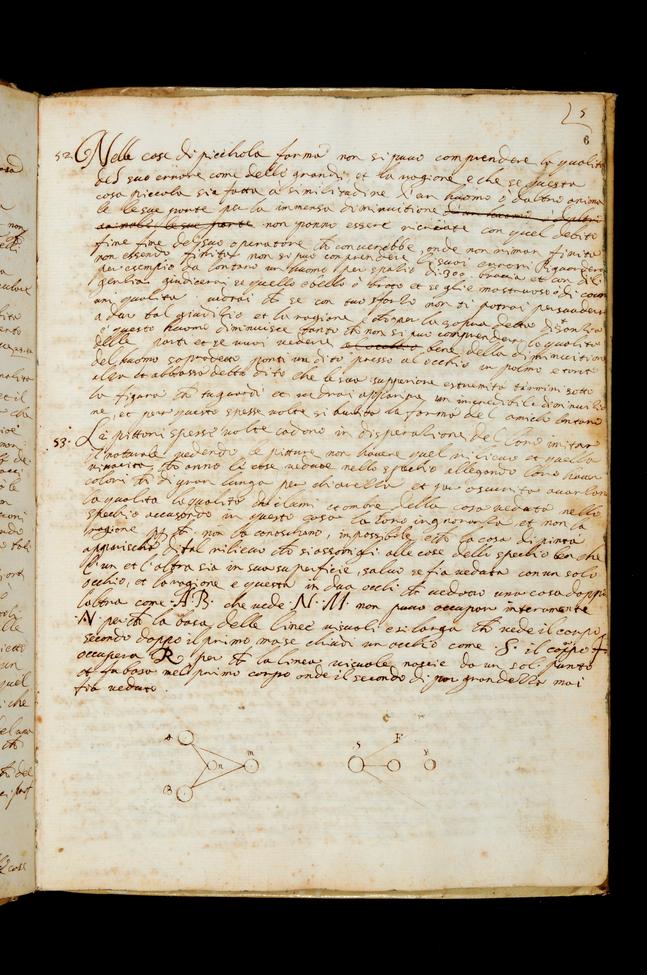 5
6
52. Nelle cose di picchola forma non si puuo comprendere la qualità
del suo errore come delle grandi, et la ragione e che se questa
cosa piccola sia fatta a similitudine d'un huomo o d'altro anima
le le sue parte per la immensa diminuitione
non ponno essere ricercate con quel debito
fine del suo operatore che converebbe, onde non riman finita
non essendo finita non si puo comprendere li suoi errori Riguarderai
per esempio da lontano un huomo per spatio di 300 braccia et con dili
gentia giudicerai se quello è bello o bruto et se gli è mostruoso o di comu
ne qualita, vedrai che se con tuo sforzo non ti potrai persuadere
a dar tal giuditio et la ragione che per la sopra detta distantia
questo huomo diminuisce tanto che non si puo comprender la qualità
delle parti et se vuoi vedere bene della diminuitione
del huomo sopradetto ponti un dito presso al occhio un palmo e torci
alza et abbassa detto dito che la sua superiore estremità termini sotto
la figura che tu guardi et vedrai apparire un incredibile diminuitio
ne, et per questo spesse volte si dubita la forma del amicho lontano
53. Li pittori spesse volte cadono in disperatione del loro imitare
il naturale vedendo le pitture non havere quel rilievo et quella
vivacità che anno le cose vedute nello spechio allegando loro haver
colori che di gran lunga per chiarezza et per oscurità avanzano
la qualità la qualità de i lumi et ombre della cosa veduta nello
spechio accusando in questo caso la loro ignoranza et non la
ragione per che non la conoscano, impossibile è che la cosa di pinta
apparischa di tal rilievo che si assomigli alle cose delli spechio ben che
l'un et l'altra sia in sua superficie, salvo se fia veduta con un solo
occhio, et la ragione e questa in dua occhi che vedano una cosa doppo
l'altra come .A.B. che vede .N.M. non puuo occupar interamente
N per che la basa delle linee visuali è si larga che vede il corpo
secondo doppo il primo ma se chiudi un occhio come .S. il corpo f
occupera .R. per che la linea visuale nascie da un sol punto
et fa basa nel primo corpo onde il secondo di par grandezza mai
fia veduto.
A
n
m
B
S
F
r